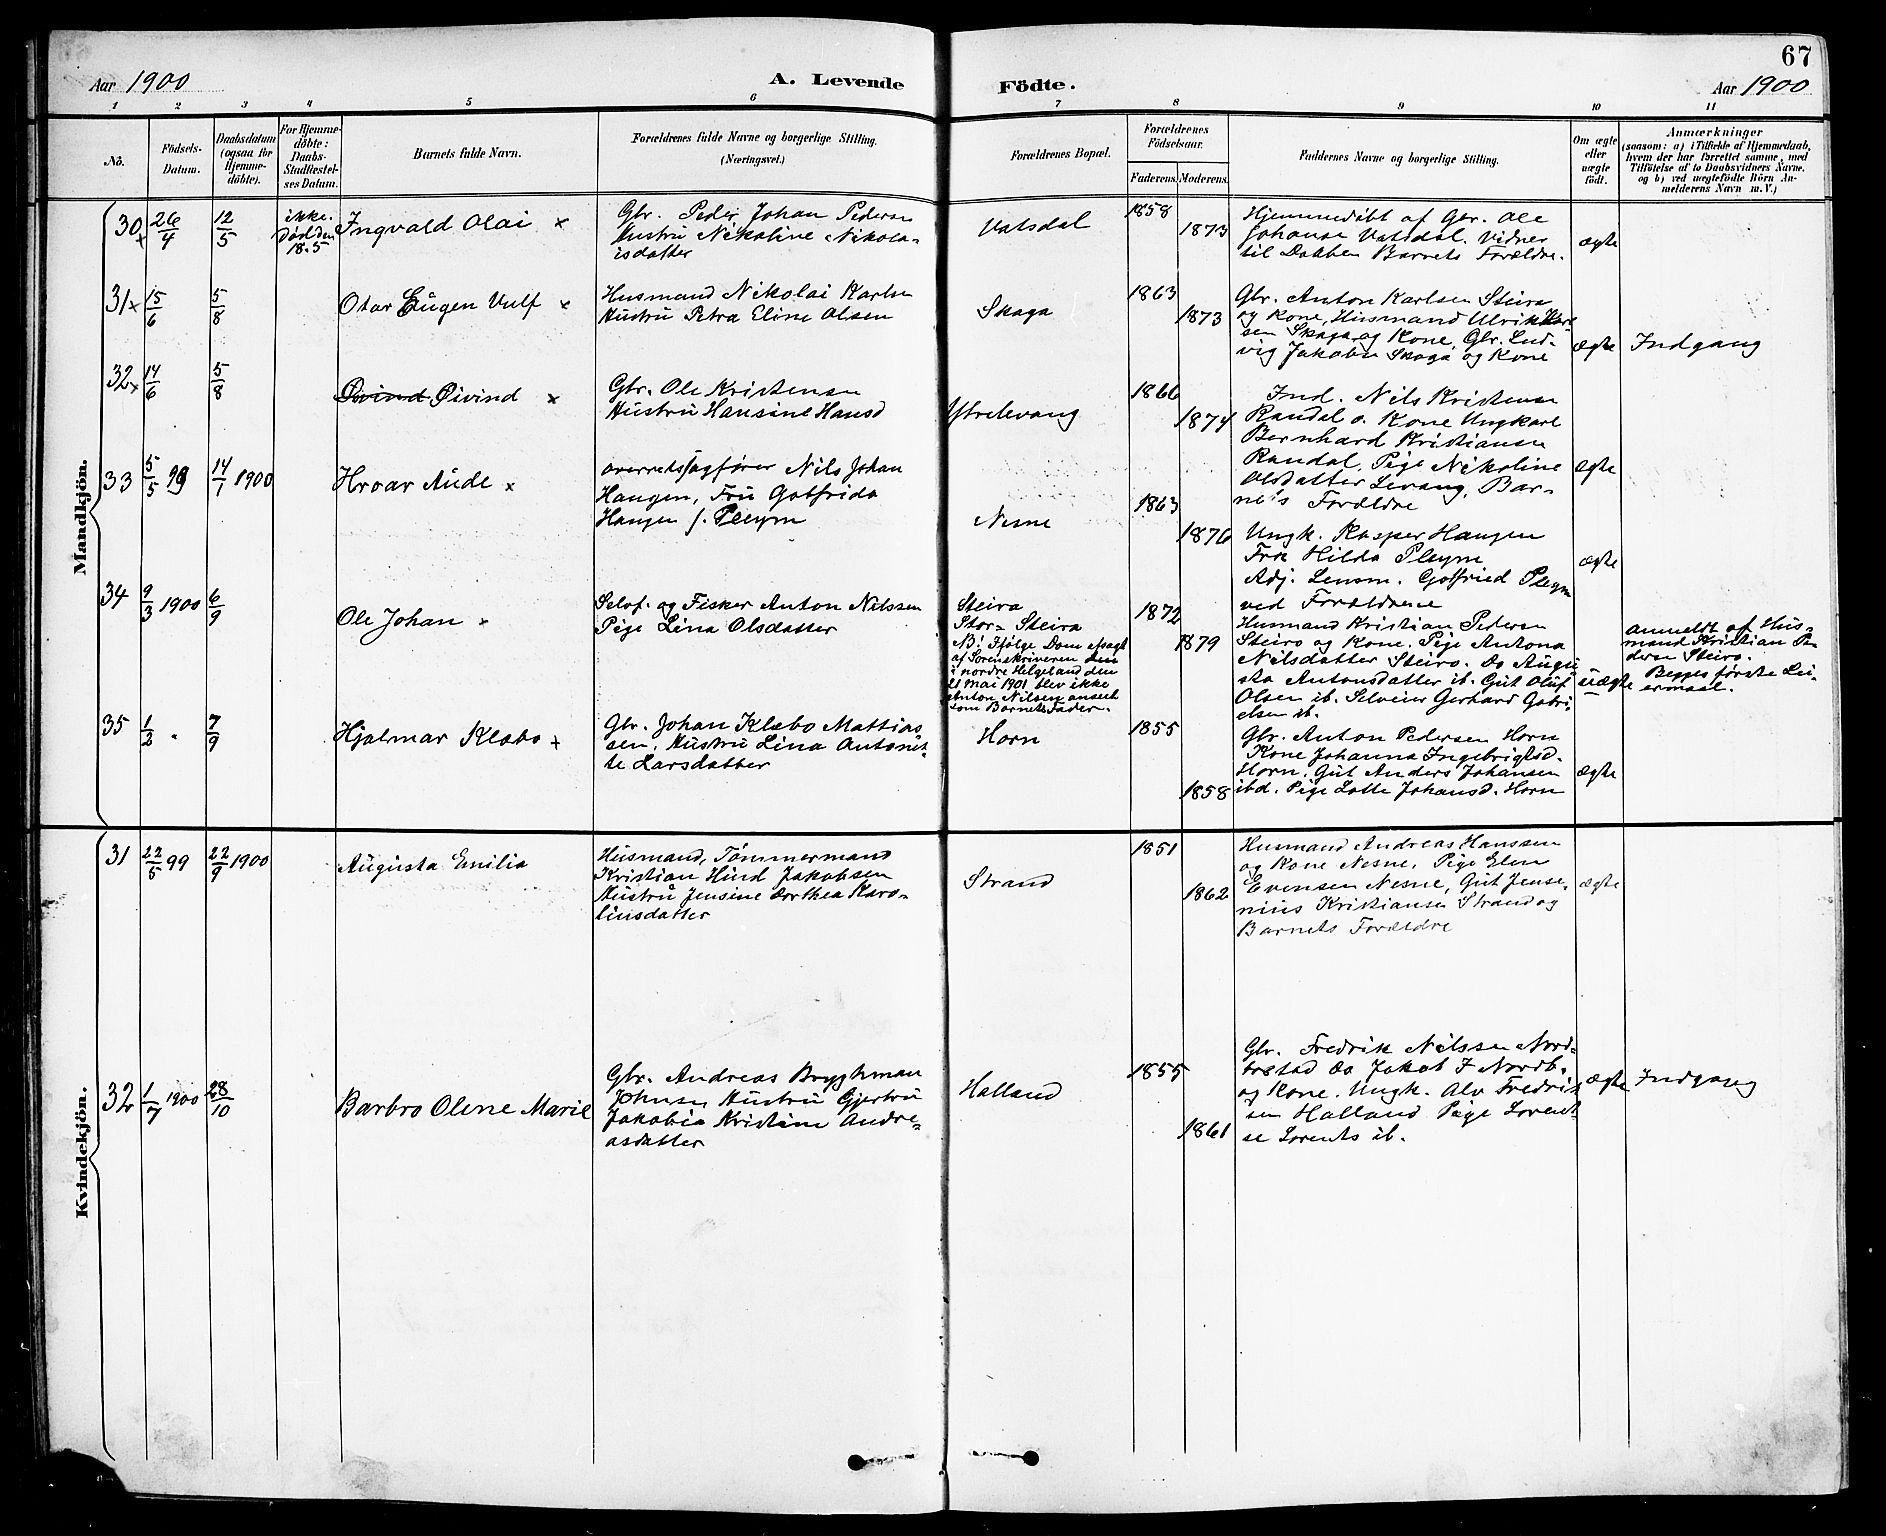 67
Aar 1900
A. Levende
Födte.
Aar 1900
1 2 3 4 5 6 7 8 9 10 11
No.
Födsels-
Datum.
Daabsdatum
(ogsaa for
Hjemme-
döbte).
For Hjemme-
döbte:
Daabs-
Stadfæstel-
ses Datum.
Barnets fulde Navn.
Forældrenes fulde Navne og borgerlige Stilling.
(Næringsvei.)
Forældrenes Bopæl.
Forældrenes
Födselsaar.
Faderens. Moderens.
Faddernes Navne og borgerlige Stilling.
Om ægte
eller
uægte
födt.
Anmærkninger
(soasom: a) i Tilfælde af Hjemmedaab,
hvem der har forrettet samme, med
Tilföielse af to Daabsvidners Navne,
og b) ved uægtefödte Börn An-
melderens Navn m. V.)
Mandkjön.
30 x
26/4
12/5
ikke.
18.5
Ingvald Olai x
Gbr. Peder Johan Pedersen
Hustru Nikoline Nikola-
isdatter
Vatsdal
1858
1873
Hjemmedøbt af Gbr. Ole
Johansen Vatsdal. Vidner
til Daaben Barnets Forældre.
ægte
31 x
15/6
5/8
Otar Eugen Vulf x
Husmand Nikolai Karlsen
Hustru Petra Eline Olsen
Skaga
1863
1873
Gbr. Anton Karlsen Steira
og Kone, Husmand Ulrik Karl
sen Skaga og Kone, Gbr. Lud-
vig Jakobsen Skaga og Kone
ægte
Indgang
32 x
14/6
5/8
Øivind Øivind x
Gbr. Ole Kristensen
Hustru Hansine Hansd
Ytrelevang
1866
1874
Ind. Nils Kristensen
Randal o. Kone Ungkarl
Bernhard Kristiansen
Randal, Pige Nikoline
Olsdatter Levang, Bar-
nets Forældre
ægte
33
5/5 99
14/1 1900
Hroar Aude x
overretssagfører Nils Johan
Haugen, Fru Gotfrida
Haugen f. Pleym
Nesne
1863
1876
Ungk. Kasper Haugen
Frk Hilda Pleym
Adj. Lensm. Gotfried Pleym
ved Forældrene
ægte
34
9/3 1900
6/9
Ole Johan x
Selvf. og Fisker Anton Nilssen
Pige Lina Olsdatter
Steira
Stor-Steira
N: Ifølge Dom afsagt
af Sorenskriveren
i nordre Helgeland den
21 mai 1901 blev ikke
Anton Nilsen anseet
som Barnets Fader.
1872
1879
Husmand Kristian Pedersen
Steiro og Kone. Pige Antona
Nilsdatter Steiro. Do Augu
sta Antonsdatter ib. Gut Oluf
Olsen ib. Selveier Gerhard Gabri
elsen ib.
uægte
anmeldt af Hus-
mand Kristian Pe-
dersen Steiro.
Begges første Lei-
ermaal.
35
1/2 "
7/9
Hjalmar Klæbo x
Gbr. Johan Klæbo Mattias
sen, Hustru Lina Antonet-
te Larsdatter
Horn
1855
1858
Gbr. Anton Pedersen Horn
Kone Johanna Ingebrigtsd.
Horn. Gut Anders Johansen
ibd. Pige Lotte Johansd. Horn
ægte
Kvindekjön.
31
22/5 99
22/9 1900
Augusta Emilia
Husmand, Tømmermand
Kristian Hind Jakobsen
Hustru Jensine Dorthea Karo-
liusdatter
Strand
1851
1862
Husmand Andreas Hanssen
og Kone Nesne, Pige Elen
Evensen Nesne, Gut Jense-
nius Kristiansen Strand og
Barnets Forældre
ægte
32
1/7 1900
28/10
Barbro Oline Marie
Gbr. Andreas Bryghman
Johnsen Hustru Gjertru
Jakobia Kristine Andre-
asdatter
Halland
1855
1861
Gbr. Fredrik Nilssen Nord-
bostad Do Jakob J Nordb.
og Kone. Ungk. Alv Fredrik
sen Halland Pige Lorent-
se Lorents ib.
ægte
Indgang